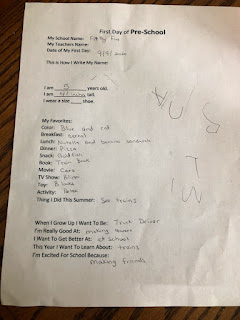 First Day of Pre-School
My School Name:
My Teachers Name:
Date of My First Day:
This is How I Write My Name:
I am 3 years old.
I am tall.
I wear a size ____ shoe.
My Favorites:
Color: Blue and red
Breakfast: cereal
Lunch: Nutella and banana sandwich
Dinner: Pizza
Snack: Goldfish
Book: Train Book
Movie: Cars
TV Show: Blippi
Toy: Blocks
Activity:
Thing I Did This Summer: See trains
When I Grow Up I Want To Be: Truck Driver
I'm Really Good At: making
I Want To Get Better At: at school
This Year I Want To Learn About: trains
I'm Excited For School Because:
making friends